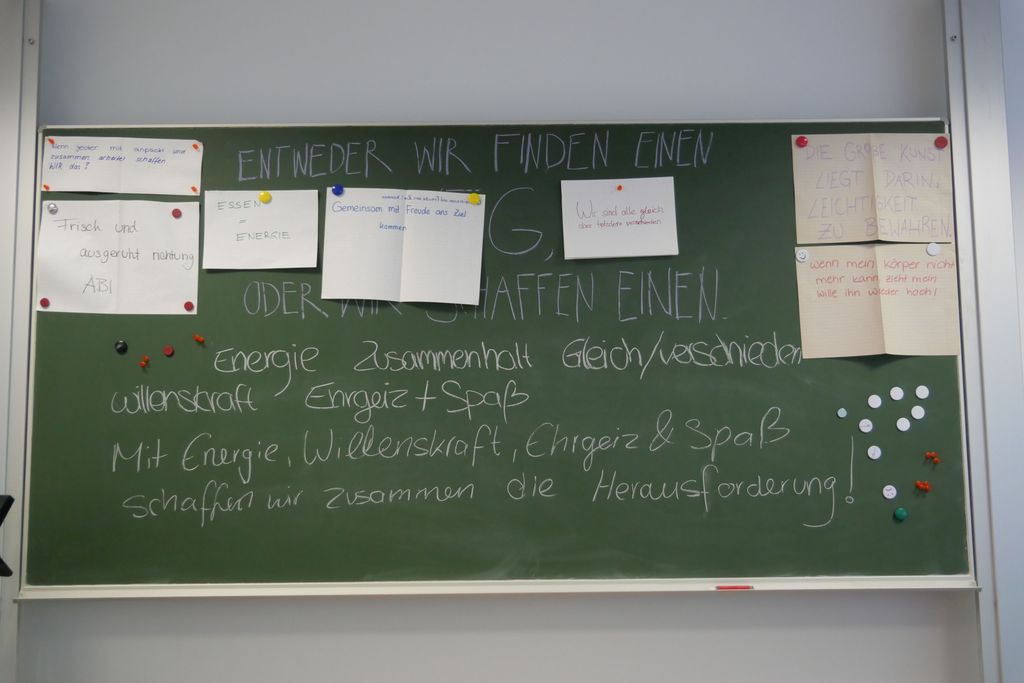 Wenn jeder mit anpackt und
zusammen arbeitet schaffen
WIR das!
Frisch und
ausgeruht richtung
ABI
ESSEN
=
ENERGIE
Gemeinsam mit Freude ans Ziel
kommen
Wir sind alle gleich
aber trotzdem verschieden
DIE GROßE KUNST
LIEGT DARIN,
LEICHTIGKEIT
ZU BEWAHREN.
wenn mein körper nicht
mehr kann zieht mein
wille ihn wieder hoch!
ENTWEDER WIR FINDEN EINEN
G,
ODER WIR SCHAFFEN EINEN.
Energie Zusammenhalt Gleich/verschieden
willenskraft Enrgeiz + Spaß
Mit Energie, Willenskraft, Ehrgeiz & Spaß
schaffen wir zusammen die Herausforderung!